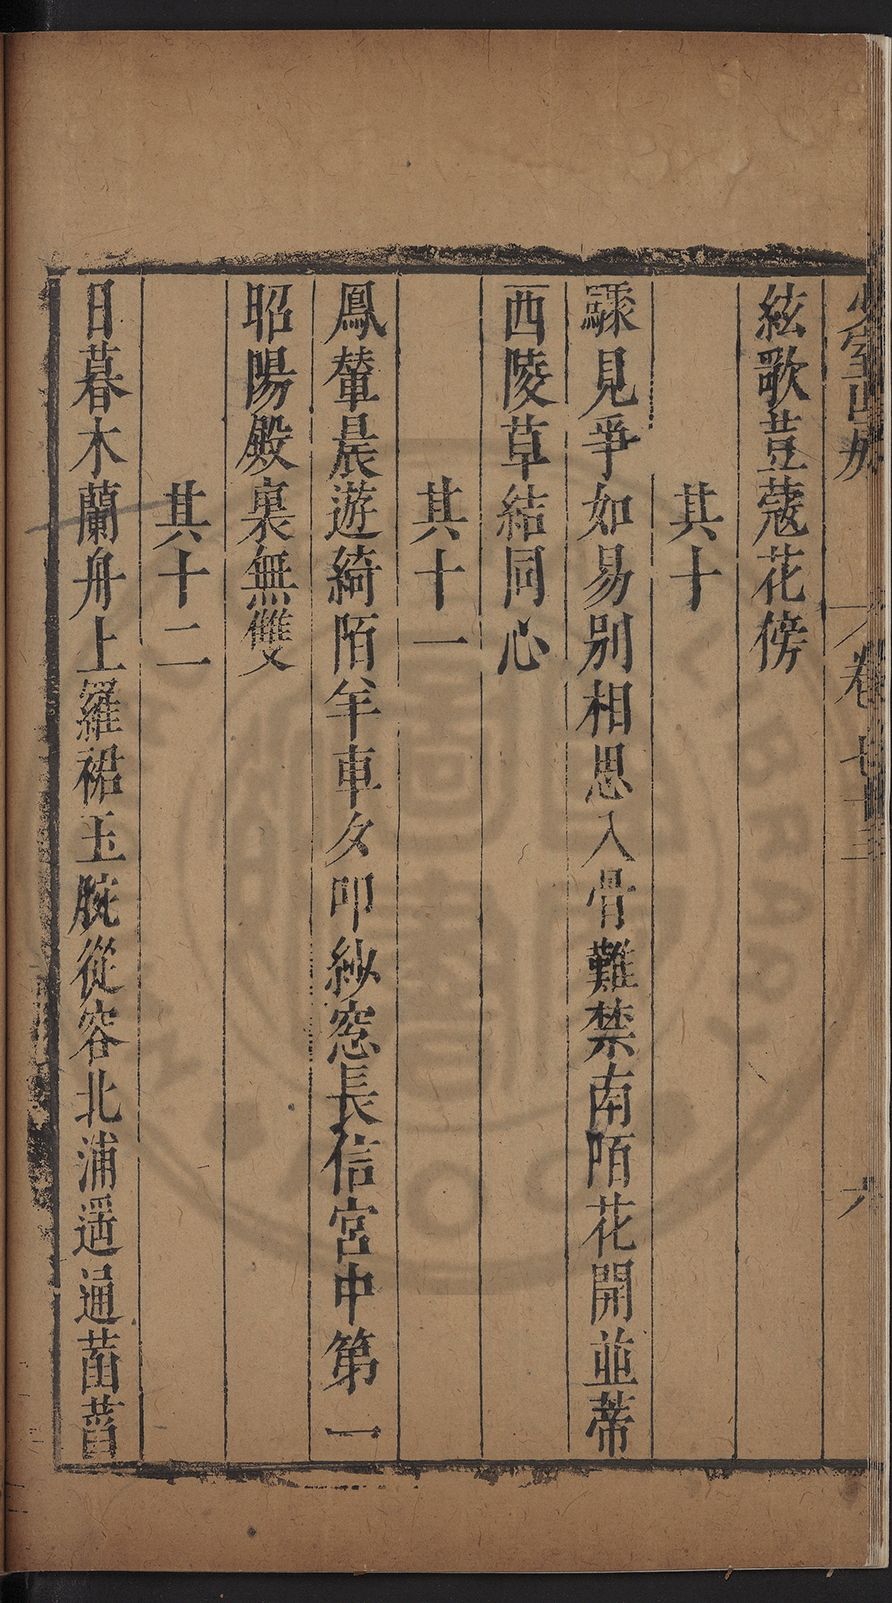 少室山房 卷七十三 六
絃歌荳蔻花傍
其十
驟見爭如易别相思入骨難禁南陌花開並蒂
西陵草結同心
其十一
鳳輦晨遊綺陌羊車夕叩紗窓長信宮中第一
昭陽殿裏無雙
其十二
日暮木蘭舟上羅裙玉腕從容北浦遥通菡萏